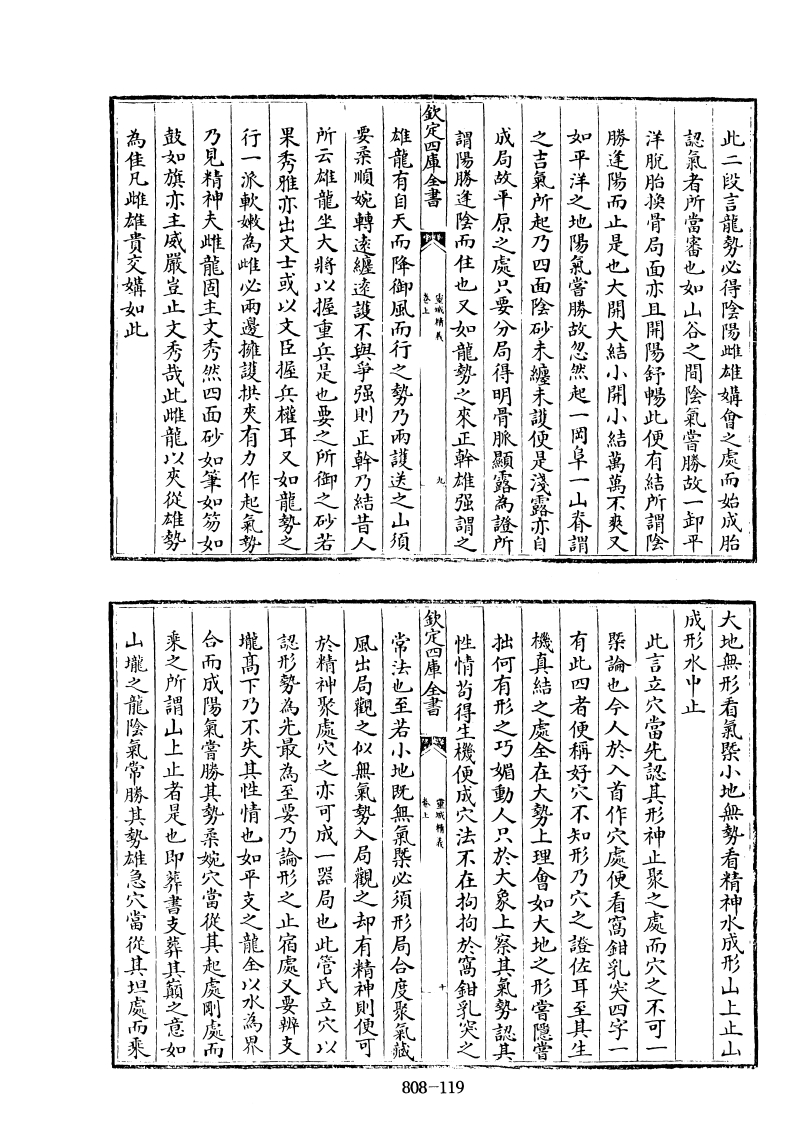 此二段言龍勢必得陰陽雌雄媾會之處而始成胎
認氣者所當審也如山谷之間陰氣嘗勝故一卸平
洋脫胎換骨局面亦且開陽舒暢此便有結所謂陰
勝逢陽而止是也大開大結小開小結萬萬不爽又
如平洋之地陽氣嘗勝故忽然起一岡阜一山脊謂
之吉氣所起乃四面陰砂未纏未護便是淺露亦自
成局故平原之處只要分局得明骨脈顯露為證所
謂陽勝逢陰而住也又如龍勢之來正幹雄强謂之
欽定四庫全書
靈城精義
卷上
九
雄龍有自天而降御風而行之勢乃兩護送之山須
要柔順婉轉遠纏遠護不與爭强則正幹乃結昔人
所云雄龍坐大將以握重兵是也要之所御之砂若
果秀雅亦出文士或以文臣握兵權耳又如龍勢之
行一派軟嫩為雌必兩邊擁護拱夾有力作起氣勢
乃見精神夫雌龍固主文秀然四面砂如筆如笏如
鼓如旗亦主威嚴豈止文秀哉此雌龍以夾從雄勢
為佳凡雌雄貴交媾如此
大地無形看氣槩小地無勢看精神水成形山上止山
成形水中止
此言立穴當先認其形神止聚之處而穴之不可一
槩論也今人於入首作穴處便看窩鉗乳突四字一
有此四者便稱好穴不知形乃穴之證佐耳至其生
機真結之處全在大勢上理會如大地之形嘗隱嘗
拙何有形之巧媚動人只於大象上察其氣勢認其
性情茍得生機便成穴法不在拘拘於窩鉗乳突之
欽定四庫全書
靈城精義
卷上
十
常法也至若小地既無氣槩必須形局合度聚氣藏
風出局觀之似無氣勢入局觀之却有精神則便可
於精神聚處穴之亦可成一器局也此管氏立穴以
認形勢為先最為至要乃論形之止宿處又要辨支
壠髙下乃不失其性情也如平支之龍全以水為界
合而成陽氣嘗勝其勢柔婉穴當從其起處剛處而
乘之所謂山上止者是也即葬書支葬其巔之意如
山壠之龍陰氣常勝其勢雄急穴當從其坦處而乘
808-119